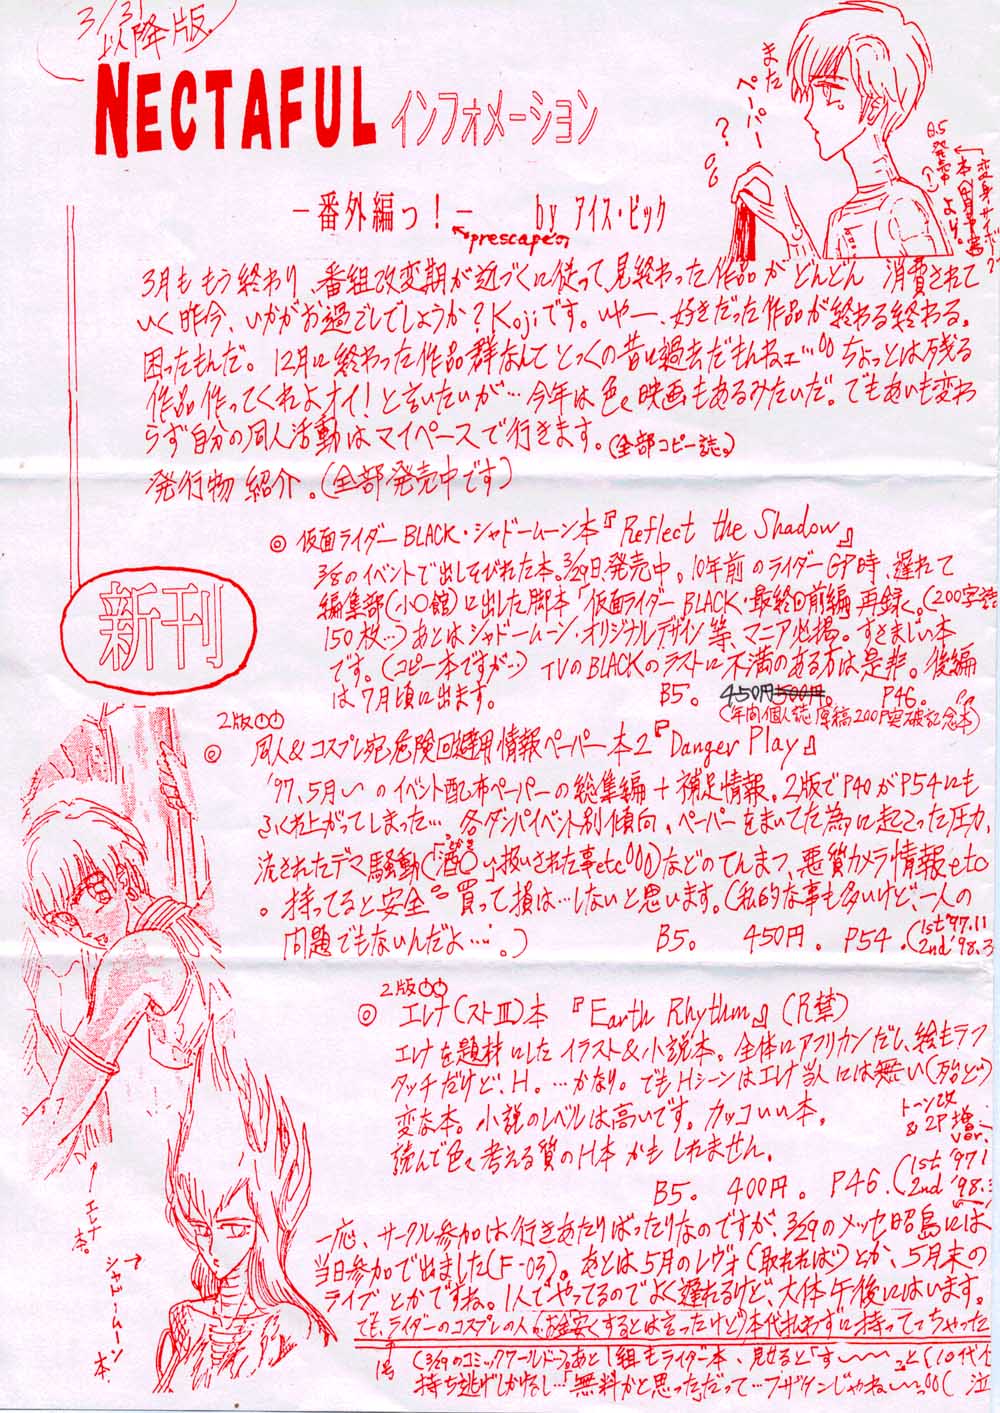 3/31
以降版
NECTAFUL インフォメーション
また
ペーパー
?
－番外編っ！－ by アイス・ピック
prescape
3月ももう終わり、番組改変期が近づくに従って、見終わった作品がどんどん 消費されて
いく昨今、いかがお過ごしでしょうか？Kojiです。いやー、好きだった作品が終わる終わる。
困ったもんだ。12月に終わった作品群なんてとっくの昔に過去だもんねェ…ちょっとは残る
作品作ってくれよオイ！と言いたいが…今年は色々映画もあるみたいだ。でもあいも変わ
らず自分の同人活動はマイペースで行きます。(全部コピー誌。)
発行物紹介。(全部発売中です)
新刊
◎ 仮面ライダーBLACK・シャドームーン本『Reflect the Shadow』
3/8のイベントで出しそびれた本。3/29日、発売中。10年前のライダーGP時、遅れて
編集部(小○館)に出した脚本「仮面ライダーBLACK・最終回前編」再録。(200字詰
150枚…)あとはシャドームーン・オリジナルデザイン等、マニア必携。すさまじい本
です。(コピー本ですが…)TVのBLACKのラストに不満のある方は是非。後編
は7月頃に出ます。 B5。 450円 500円。 P46。
(年間個人誌原稿200P突破記念本)
2版
◎ 同人&コスプレ宛危険回避用情報ペーパー本2『Danger Play』
'97.5月〜のイベント配布ペーパーの総集編＋補足情報。2版でP40がP54にも
ふくれ上がってしまった…。各ダンパイベント別傾向、ペーパーをまいてた為に起こった圧力、
流されたデマ騒動(「酒○」扱いされた事etc)などのてんまつ、悪質カメラ情報etc
。持ってると安全。買って損は…しないと思います。(私的な事も多いけど、一人の
問題でもないんだよ…。) B5。 450円。 P54。(1st '97.11
2nd '98.3
2版
◎ エレナ(ストⅢ)本 『Earth Rhythm』(R禁)
エレナを題材にしたイラスト&小説本。全体にアフリカンだし、絵もラフ
タッチだけど、H。…かなり。でもHシーンはエレナ当人には無い(殆ど)
変な本。小説のレベルは高いです。カッコいい本。
トーン改
&2P増
ver.
読んで色々考える質のH本かもしれません。
B5。 400円。 P46。(1st '97 1
2nd '98.3
エレナ
本。
シャドームーン
本
一応、サークル参加は行きあたりばったりなのですが、3/29のメッセ昭島には
当日参加で出ました(F-03)。あとは5月のレヴォ(取れれば)とか、5月末の
ライブとかですね。1人でやってるのでよく遅れるけど、大体午後にはいます。
でも、ライダーのコスプレの人(お金安くするとは言ったけど)本代払わずに持ってっちゃった
(3/29のコミックワールド…)。あと1組もライダー本、見せると「す〜〜」と(10代
持ち逃げしかけるし…「無料かと思った」だって…フザケンじゃね〜〜っ(泣